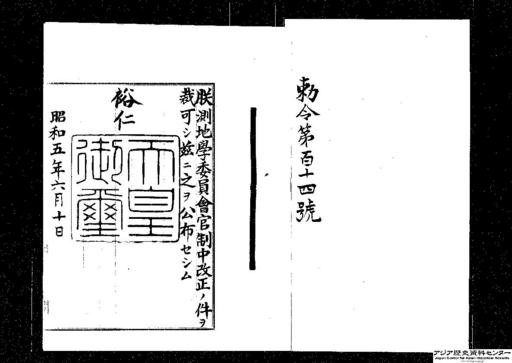 勅令第百十四號
朕測地學委員會官制中改正ノ件ヲ
裁可シ茲ニ之ヲ公布セシム
裕仁
天皇
御璽
昭和五年六月十日
アジア歴史資料センター
Japan Center for Asian Historical Records